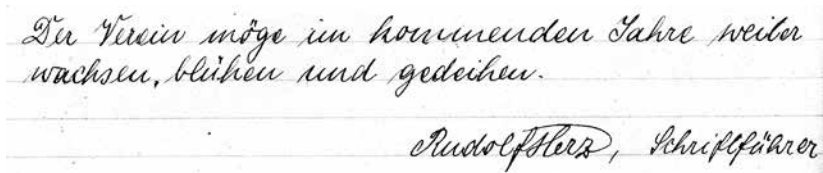 Der Verein möge im kommenden Jahre weiter
wachsen, blühen und gedeihen.
Rudolf Herz, Schriftführer